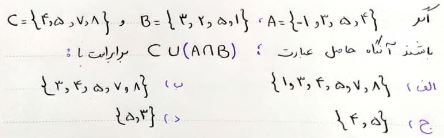 اگر A={-1,۳,۵,۴} ، B={۳,۲,۵,۱} و C={۴,۵,۷,۸}
باشند آنگاه حاصل عبارت C∪(A∩B) برابر است با :
الف) {۱,۳,۴,۵,۷,۸} ب) {۳,۴,۵,۷,۸}
ج) {۴,۵} د) {۵,۳}